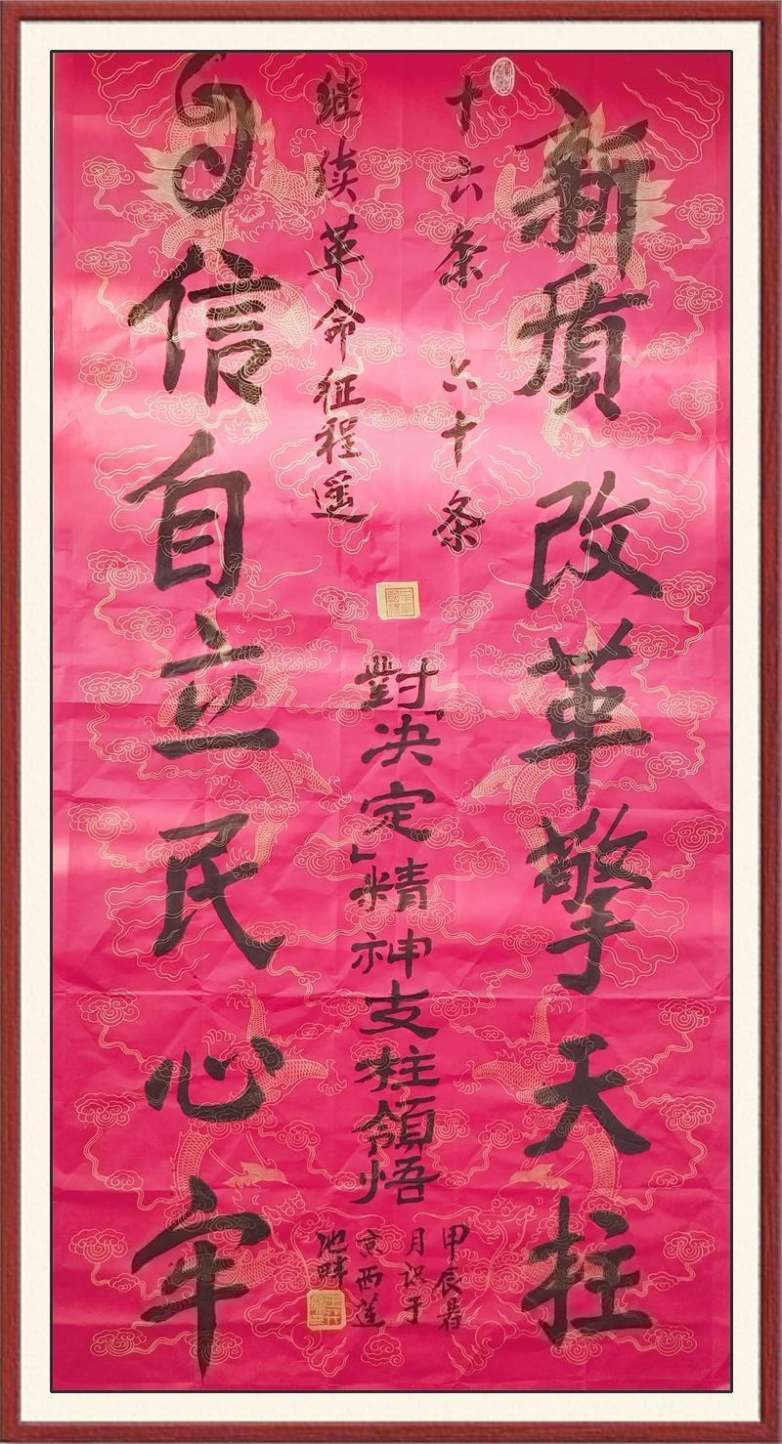 新质改革擎天柱
十六条 六十条
继续革命征程遥
自信自立民心牢
對「决定」精神支柱領悟
甲辰暑
月识于
京西莲
池畔